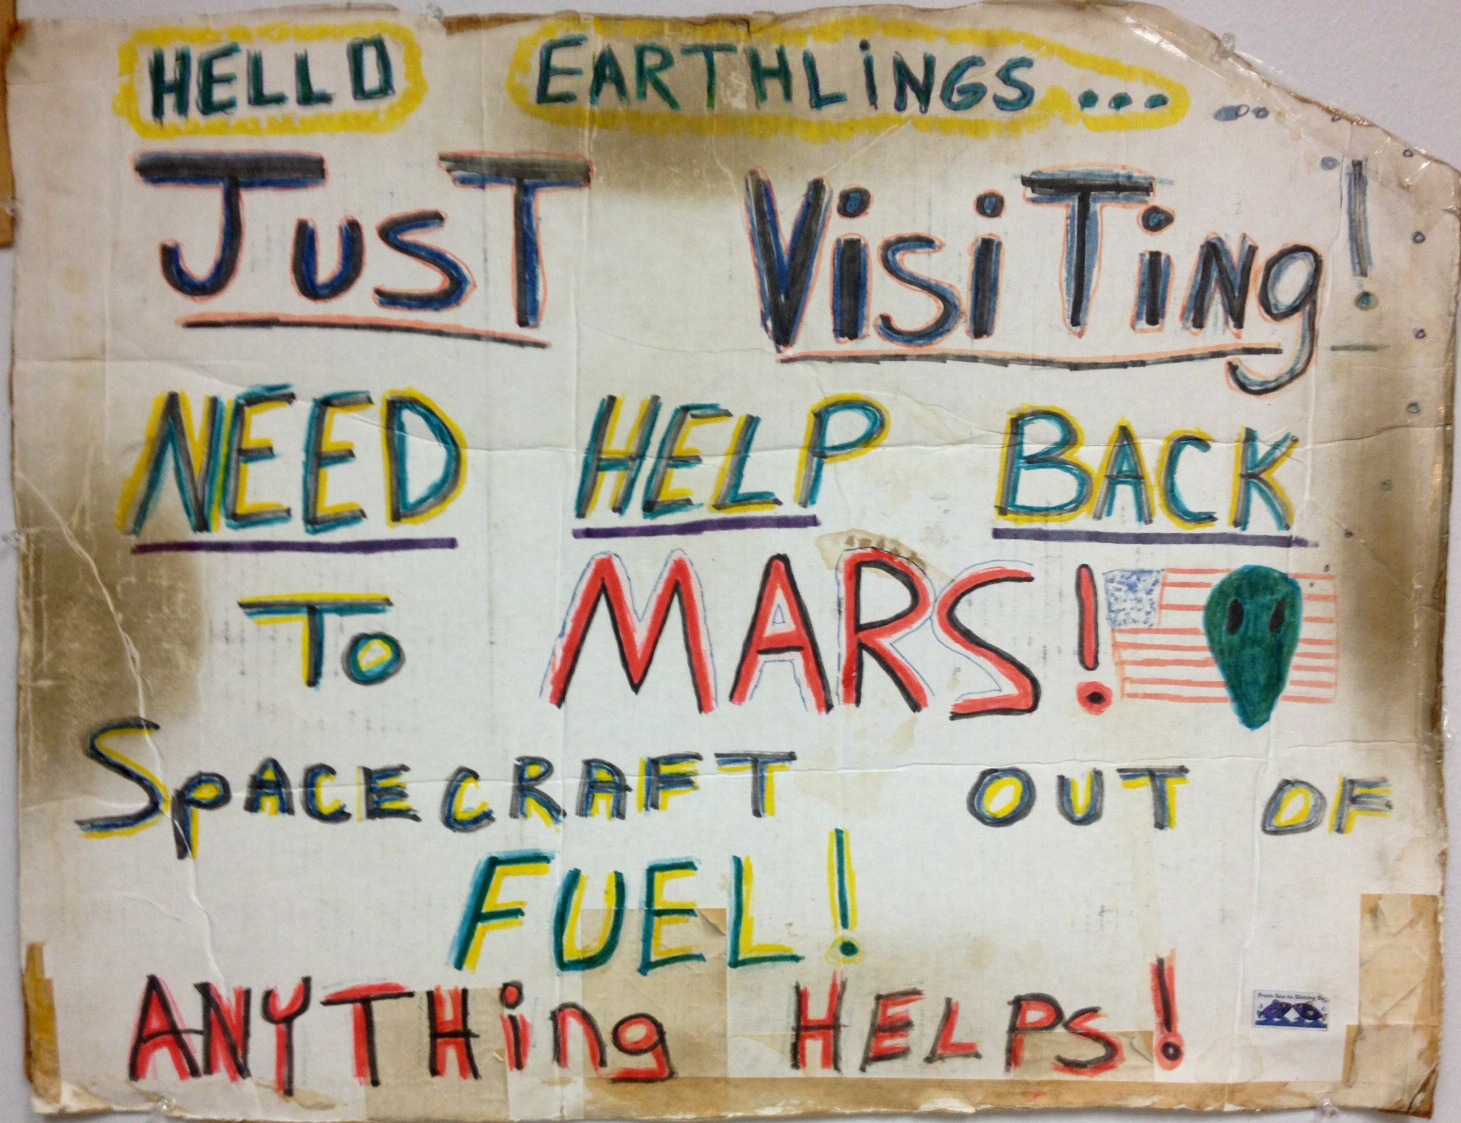 HELLO EARTHLiNGS...
JusT VisiTing!
NEED HELP BACK
To MARS!
SpACECRAFT OUT OF
FUEL!
ANYTHing HELPs!
From Sea to Shining Sea